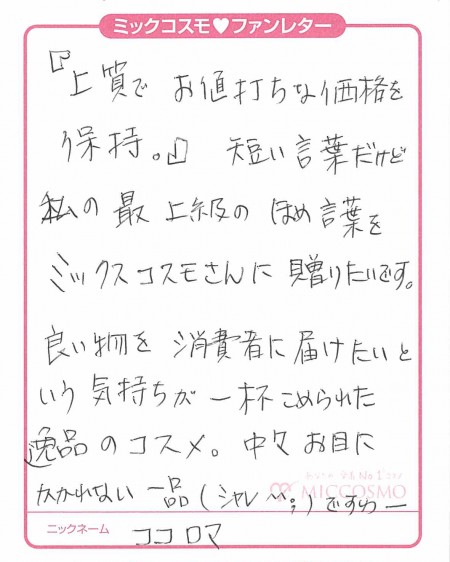 ミックコスモ♥ファンレター
『上質で お値打ちな価格を
保持。』 短い言葉だけど
私の最上級の ほめ言葉を
ミックスコスモさんに 贈りたいです。
良い物を 消費者に届けたいと
いう気持ちが 一杯こめられた
逸品のコスメ。中々お目に
かかれない一品(シャレ^^;)ですわー
MICCOSMO
ニックネーム
ココロマ